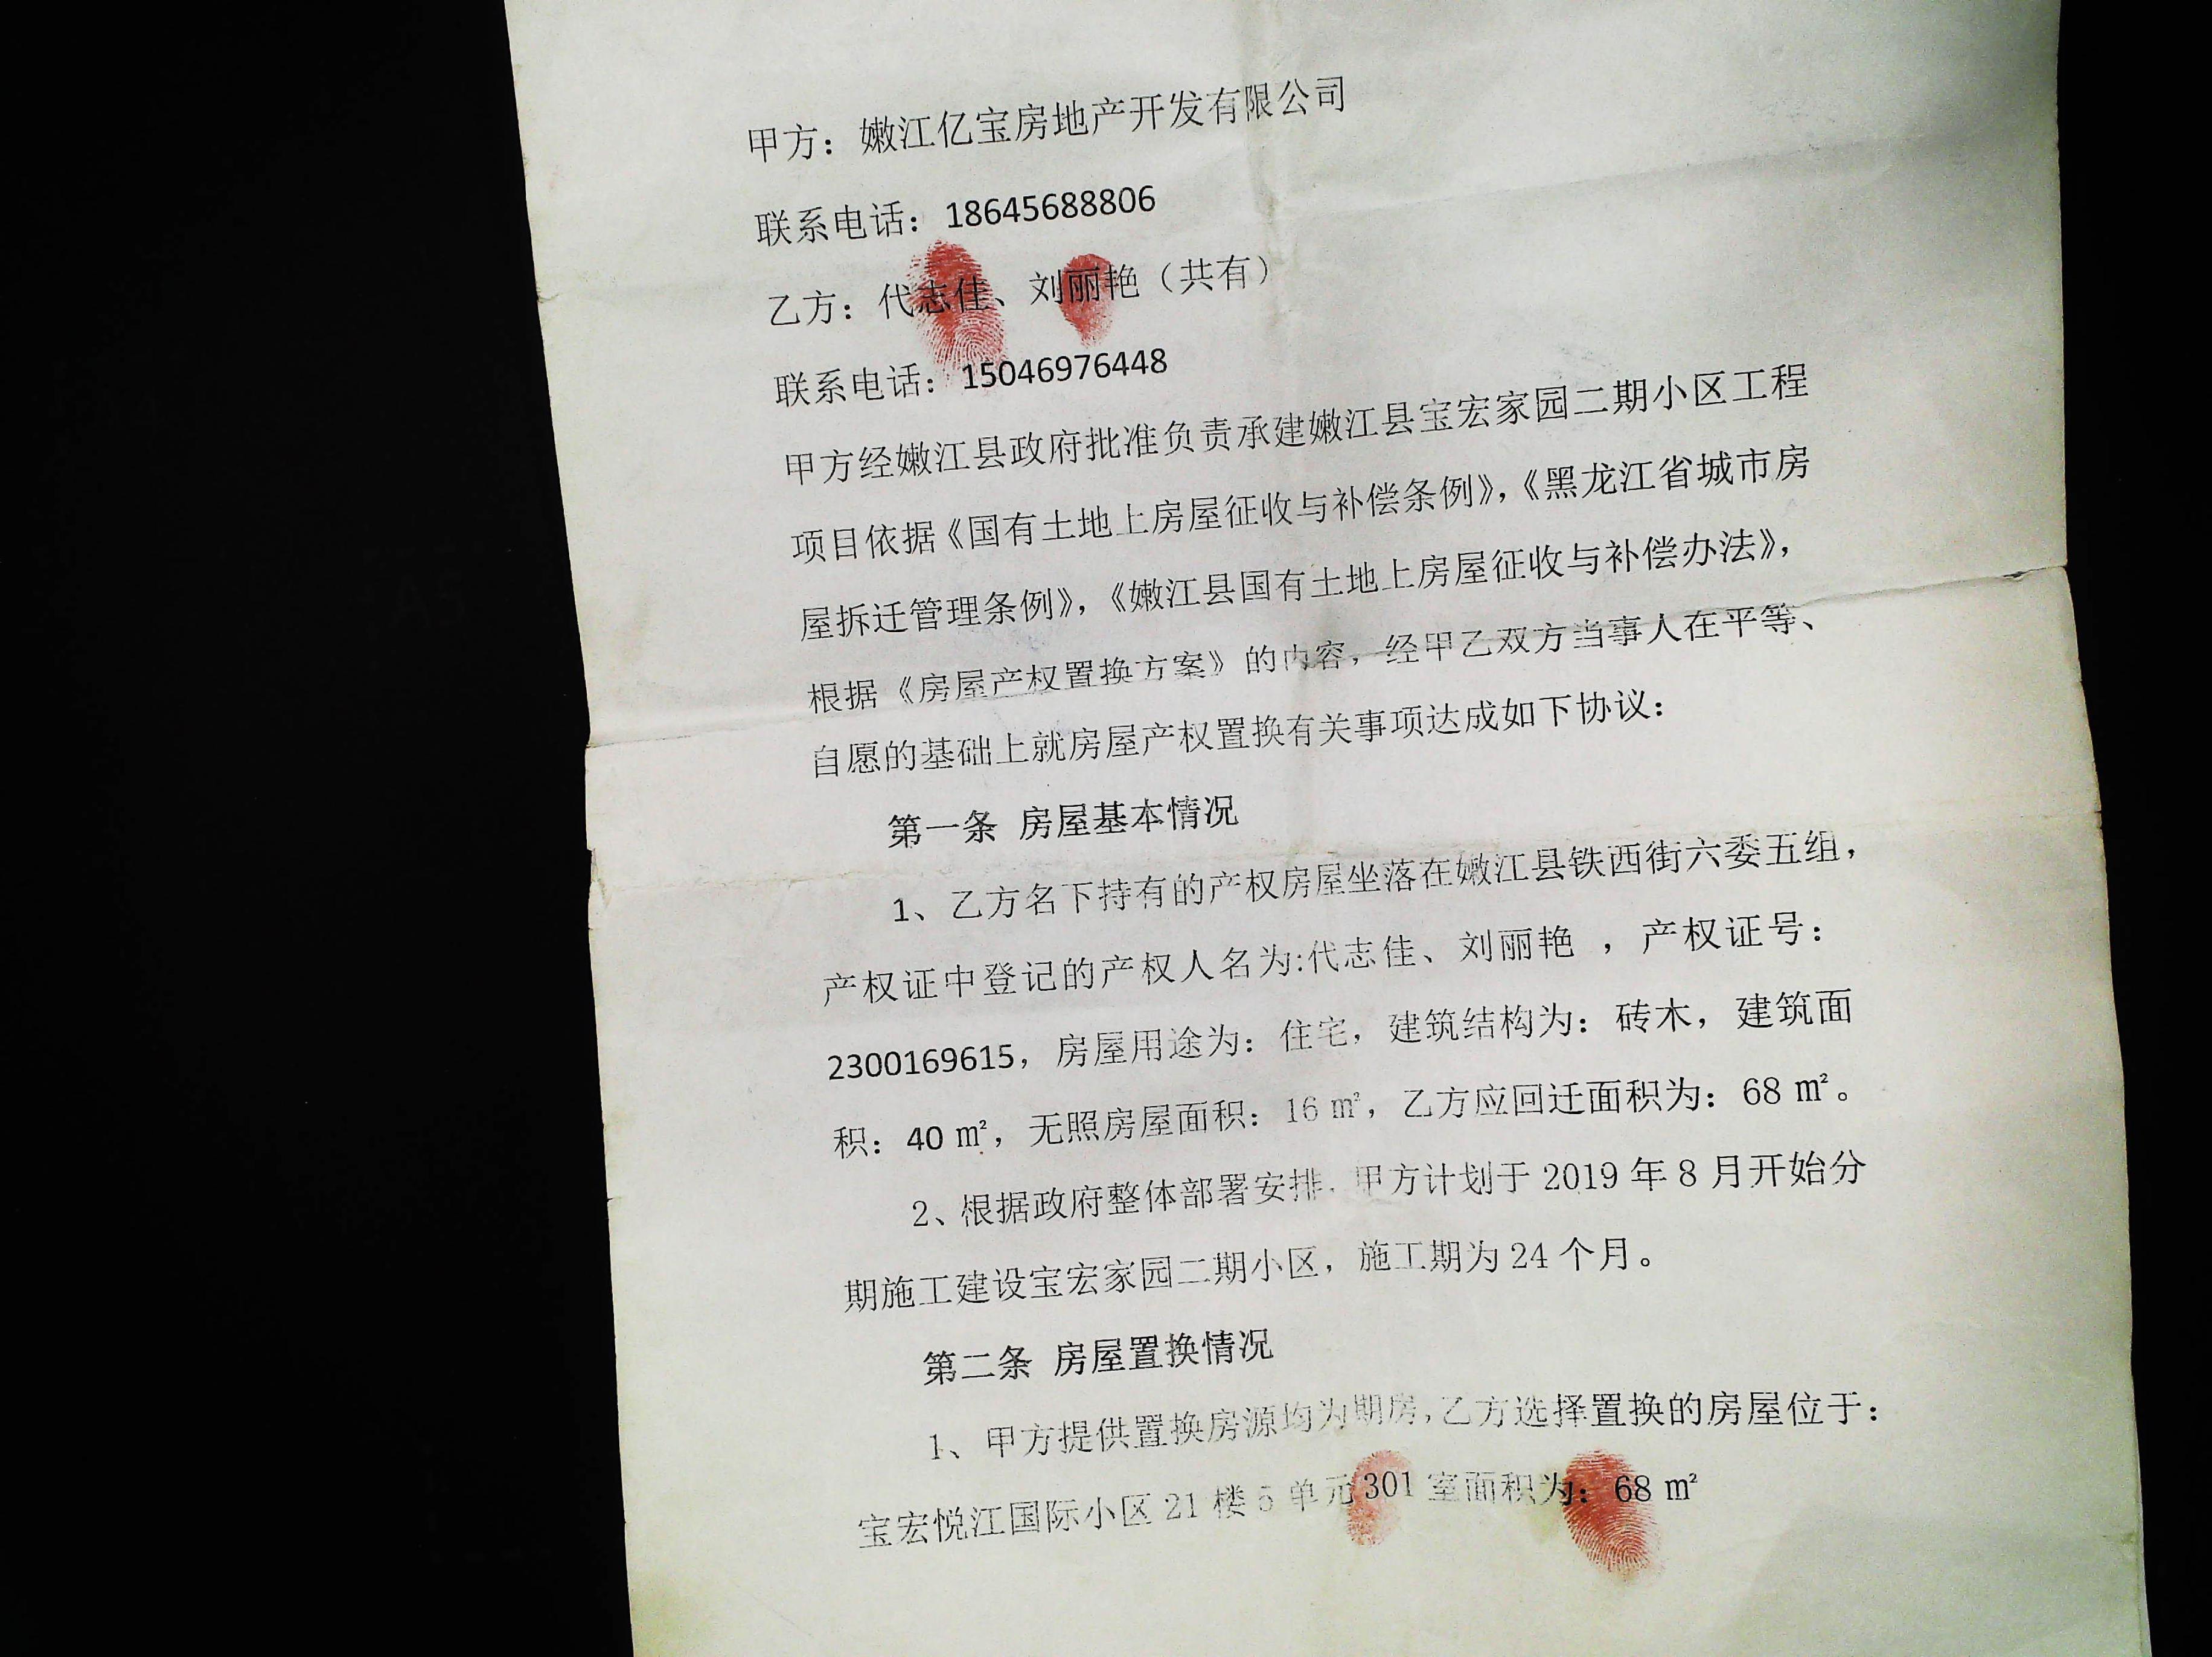 甲方：嫩江亿宝房地产开发有限公司
联系电话：18645688806
乙方：代志佳、刘丽艳（共有）
联系电话：15046976448
甲方经嫩江县政府批准负责承建嫩江县宝宏家园二期小区工程
项目依据《国有土地上房屋征收与补偿条例》，《黑龙江省城市房
屋拆迁管理条例》，《嫩江县国有土地上房屋征收与补偿办法》，
根据《房屋产权置换方案》的内容，经甲乙双方当事人在平等、
自愿的基础上就房屋产权置换有关事项达成如下协议：
第一条 房屋基本情况
1、乙方名下持有的产权房屋坐落在嫩江县铁西街六委五组，
产权证中登记的产权人名为:代志佳、刘丽艳 ，产权证号：
2300169615，房屋用途为：住宅，建筑结构为：砖木，建筑面
积：40 ㎡，无照房屋面积：16 ㎡，乙方应回迁面积为：68 ㎡。
2、根据政府整体部署安排，甲方计划于 2019 年 8 月开始分
期施工建设宝宏家园二期小区，施工期为 24 个月。
第二条 房屋置换情况
1、甲方提供置换房源均为期房,乙方选择置换的房屋位于：
宝宏悦江国际小区 21 楼 5 单元 301 室面积为：68 ㎡